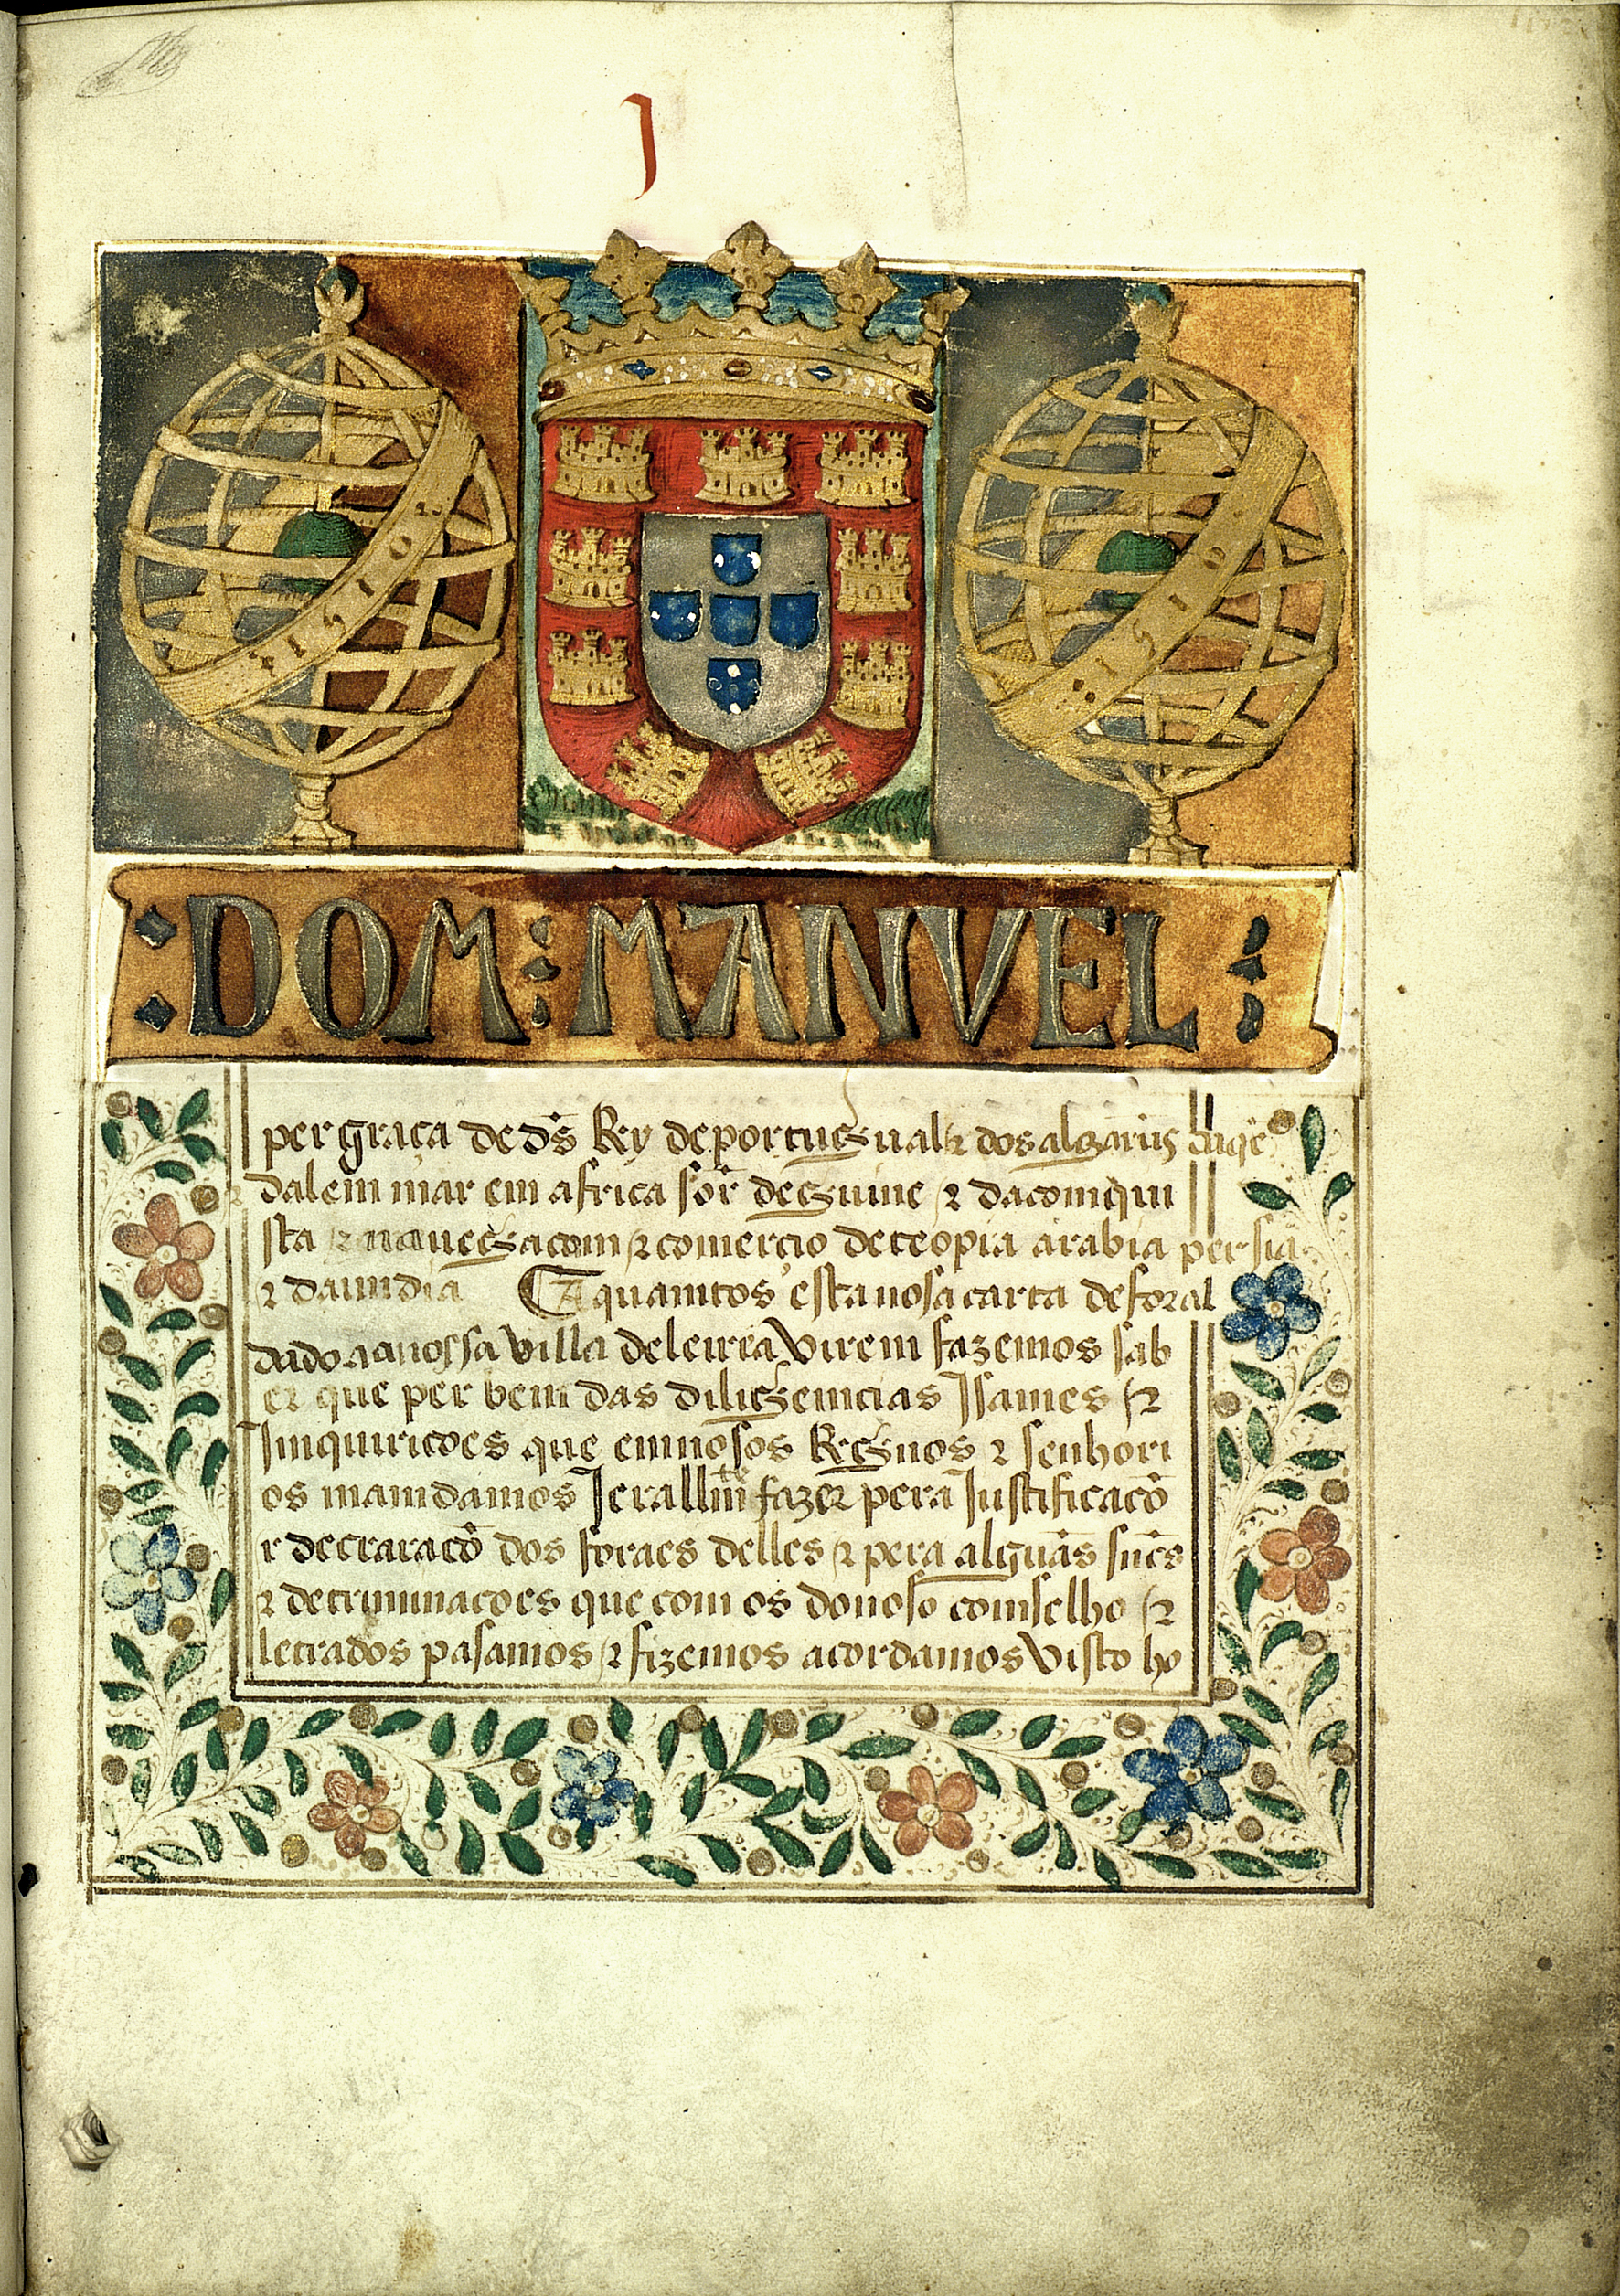 J
: DOM : MANVEL :
per graça de ds̃ Rey de portugual ⁊ dos algarus
dalem mar em africa sõr de guine ⁊ da comqui
sta ⁊ nauegacom ⁊ comercio de teopia arabia persia
⁊ da imdia A quamtos esta nosa carta de foral
dado a nossa villa de leirea virem fazemos sab
er que per bem das diligemcias Isames ⁊
Imquiricoes que em nosos Regnos ⁊ senhori
os mamdamos Jerallm̃te fazer pera Justificacõ
⁊ decraracõ dos foraes delles ⁊ pera alguãs
⁊ detriminacoes que com os do noso comselho ⁊
letrados pasamos ⁊ fizemos acordamos visto ho